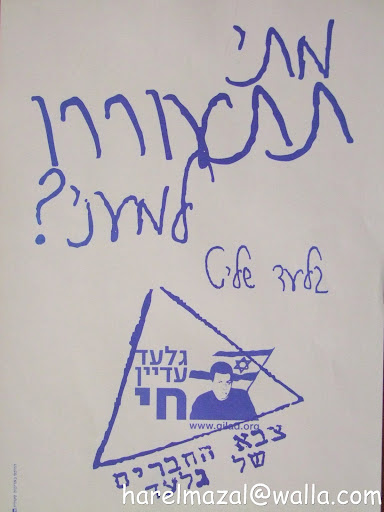 מתי
תתעוררו
למעני?
גלעד שליט
גלעד
עדיין
חי
www.gilad.org
צבא החברים
של גלעד
harelmazal@walla.com